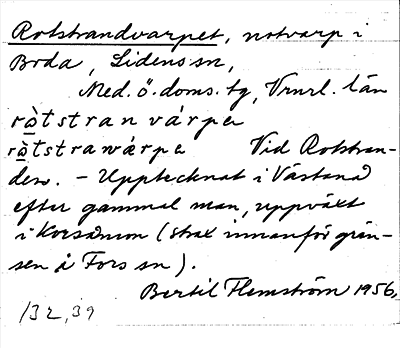 Rotstrandvarpet, notvarp i
Boda, Lidens sn,
Med. ö. doms. tg, Vrnrl. län
ràtstranvárpe
ràtstrawárpe Vid Rotstran-
den. - Upptecknat i Västanå
efter gammal man, uppväxt
i Korsåmon (strax innanför grän-
sen å Fors sn).
Bertil Flemström 1956,
132,39